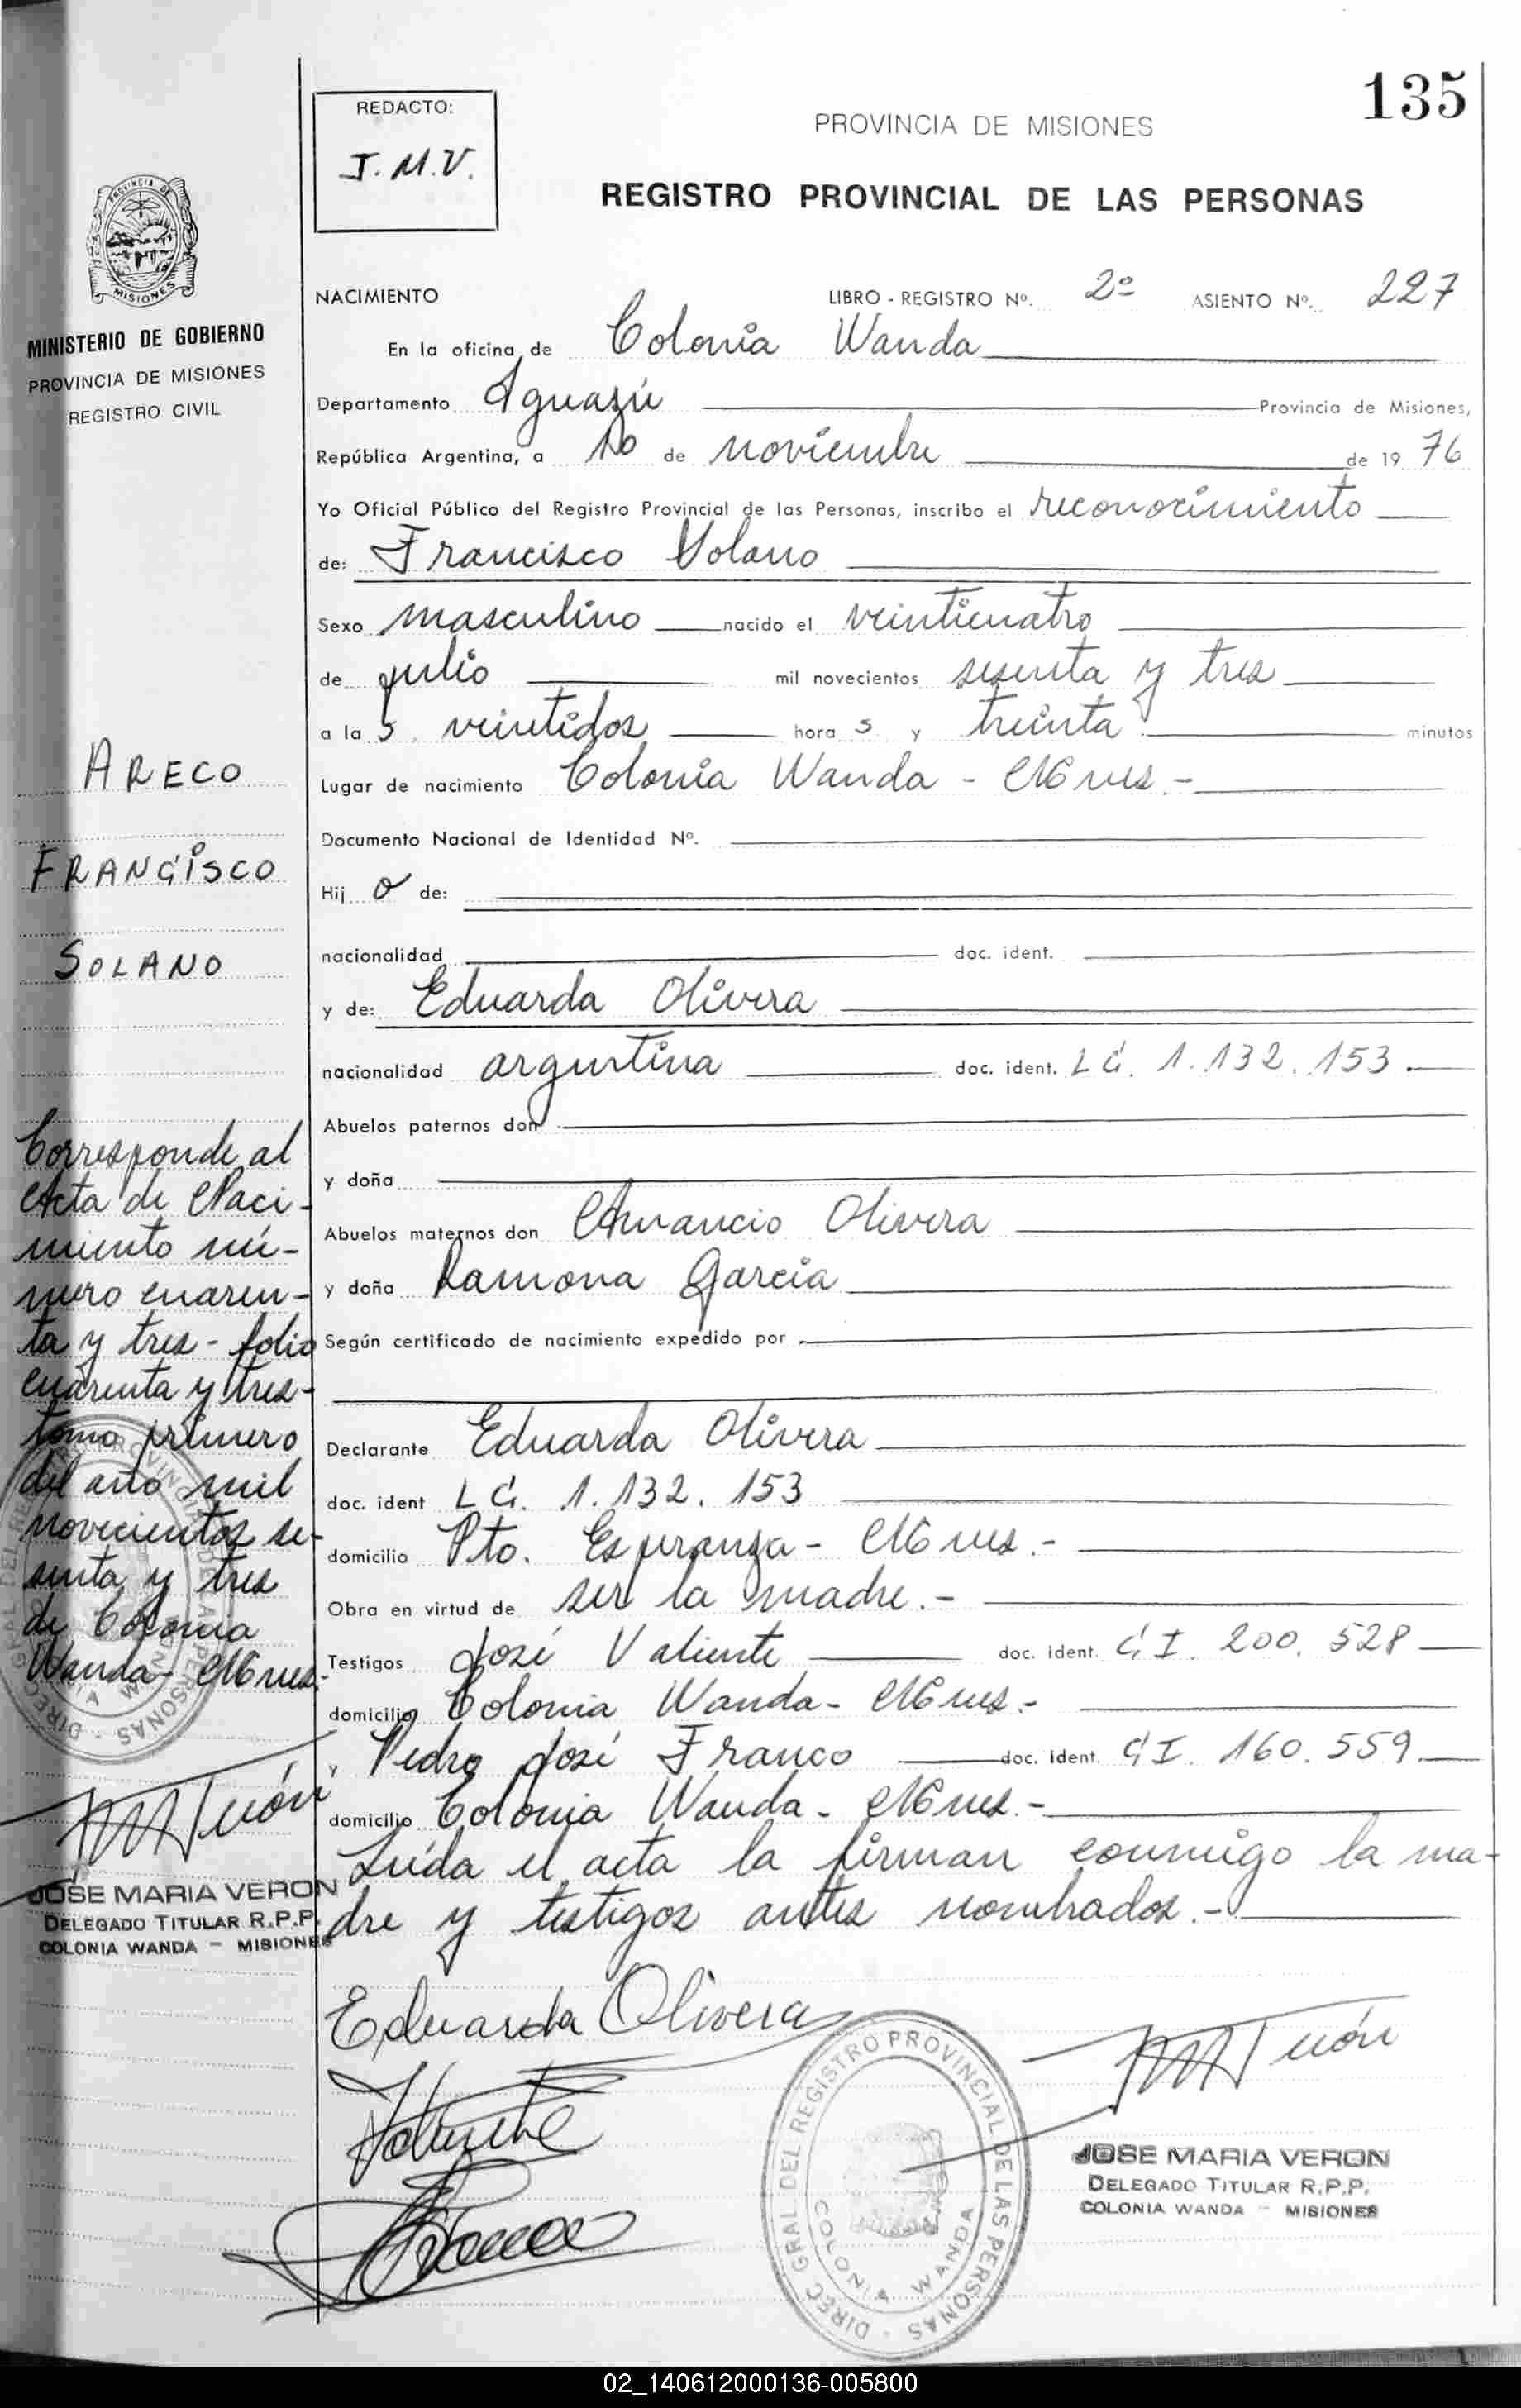 135
REDACTO:
J.M.V.
PROVINCIA DE MISIONES
REGISTRO PROVINCIAL DE LAS PERSONAS
PROVINCIA DE
MISIONES
MINISTERIO DE GOBIERNO
PROVINCIA DE MISIONES
REGISTRO CIVIL
ARECO
FRANCISCO
SOLANO
Corresponde al
Acta de Naci-
miento nú-
mero cuaren-
ta y tres - folio
cuarenta y tres-
tomo primero
del año mil
novecientos se-
senta y tres
de Colonia
Wanda- Mnes.-
JOSE MARIA VERON
DELEGADO TITULAR R.P.P.
COLONIA WANDA - MISIONES
NACIMIENTO LIBRO - REGISTRO Nº. 2º ASIENTO Nº. 227
En la oficina de Colonia Wanda
Departamento Iguazú Provincia de Misiones,
República Argentina, a 10 de noviembre de 19 76
Yo Oficial Público del Registro Provincial de las Personas, inscribo el reconocimiento
de: Francisco Solano
Sexo masculino nacido el veinticuatro
de julio mil novecientos sesenta y tres
a la s veintidos hora s y treinta minutos
Lugar de nacimiento Colonia Wanda - Mnes.-
Documento Nacional de Identidad Nº.
Hij o de:
nacionalidad doc. ident.
y de: Eduarda Olivera
nacionalidad argentina doc. ident. LC. 1.132.153.
Abuelos paternos don
y doña
Abuelos maternos don Amancio Olivera
y doña Ramona Garcia
Según certificado de nacimiento expedido por
Declarante Eduarda Olivera
doc. ident LC. 1.132.153
domicilio Pto. Esperanza - Mnes.-
Obra en virtud de ser la madre.-
Testigos José Valiente doc. ident. CI. 200.528
domicilio Colonia Wanda- Mnes.-
y Pedro José Franco doc. ident. CI. 160.559
domicilio Colonia Wanda- Mnes.-
Leída el acta la firman conmigo la ma-
dre y testigos antes nombrados.-
Eduarda Olivera
DIREC GRAL DEL REGISTRO PROVINCIAL DE LAS PERSONAS
COLONIA WANDA
JOSE MARIA VERON
DELEGADO TITULAR R.P.P.
COLONIA WANDA - MISIONES
02_140612000136-005800